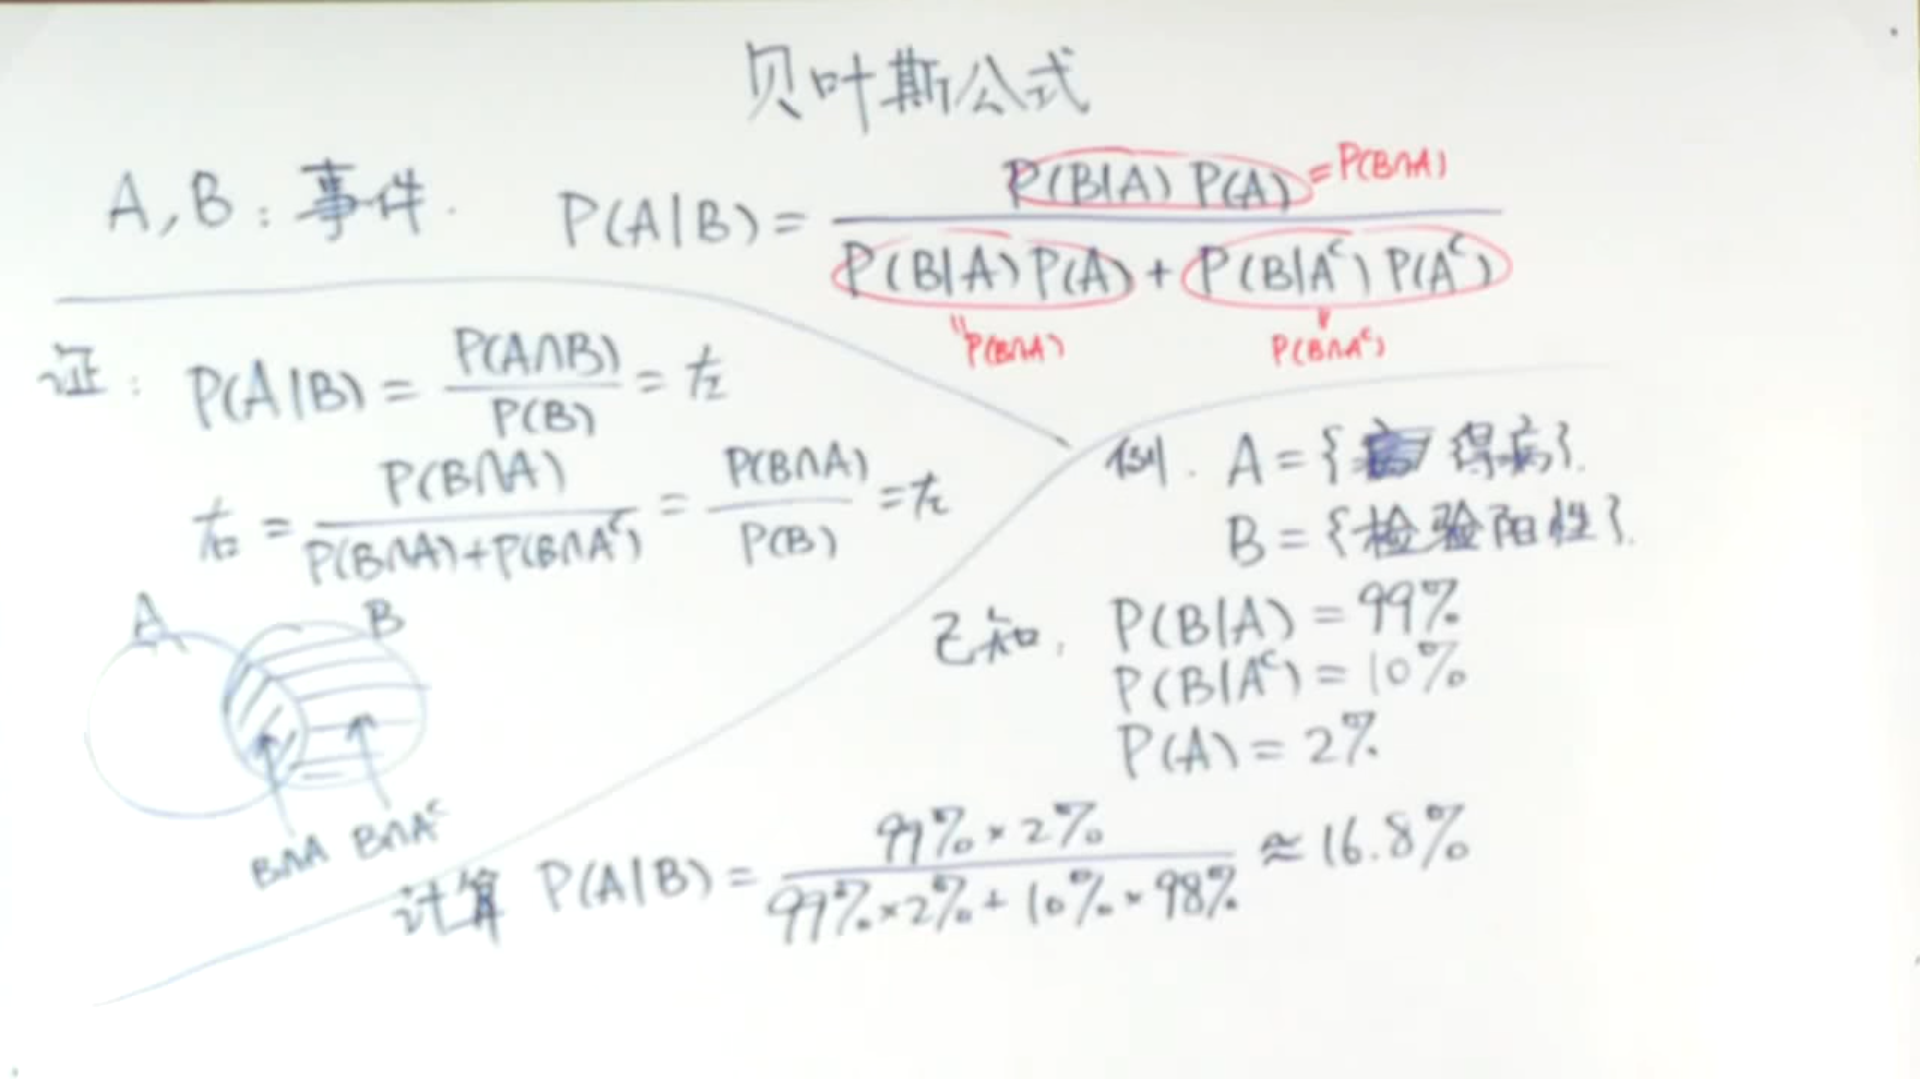 贝叶斯公式
A,B:事件. P(A|B) = P(B|A) P(A) / P(B|A) P(A) + P(B|Aᶜ) P(Aᶜ)
= P(B∩A)
" P(B∩A)
" P(B∩Aᶜ)
证: P(A|B) = P(A∩B) / P(B) = 左
右 = P(B∩A) / P(B∩A)+P(B∩Aᶜ) = P(B∩A) / P(B) = 左
A B
B∩A B∩Aᶜ
例. A = {得病}.
B = {检验阳性}.
已知, P(B|A) = 99%
P(B|Aᶜ) = 10%
P(A) = 2%
计算 P(A|B) = 99% × 2% / 99% × 2% + 10% × 98% ≈ 16.8%